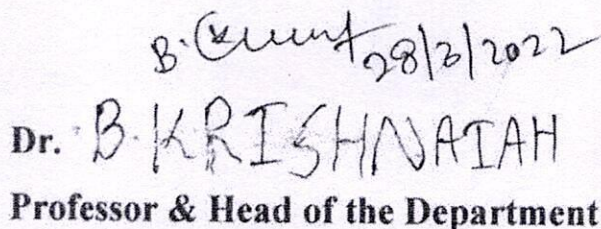 B. 28/3/2022
Dr. B. KRISHNAIAH
Professor & Head of the Department